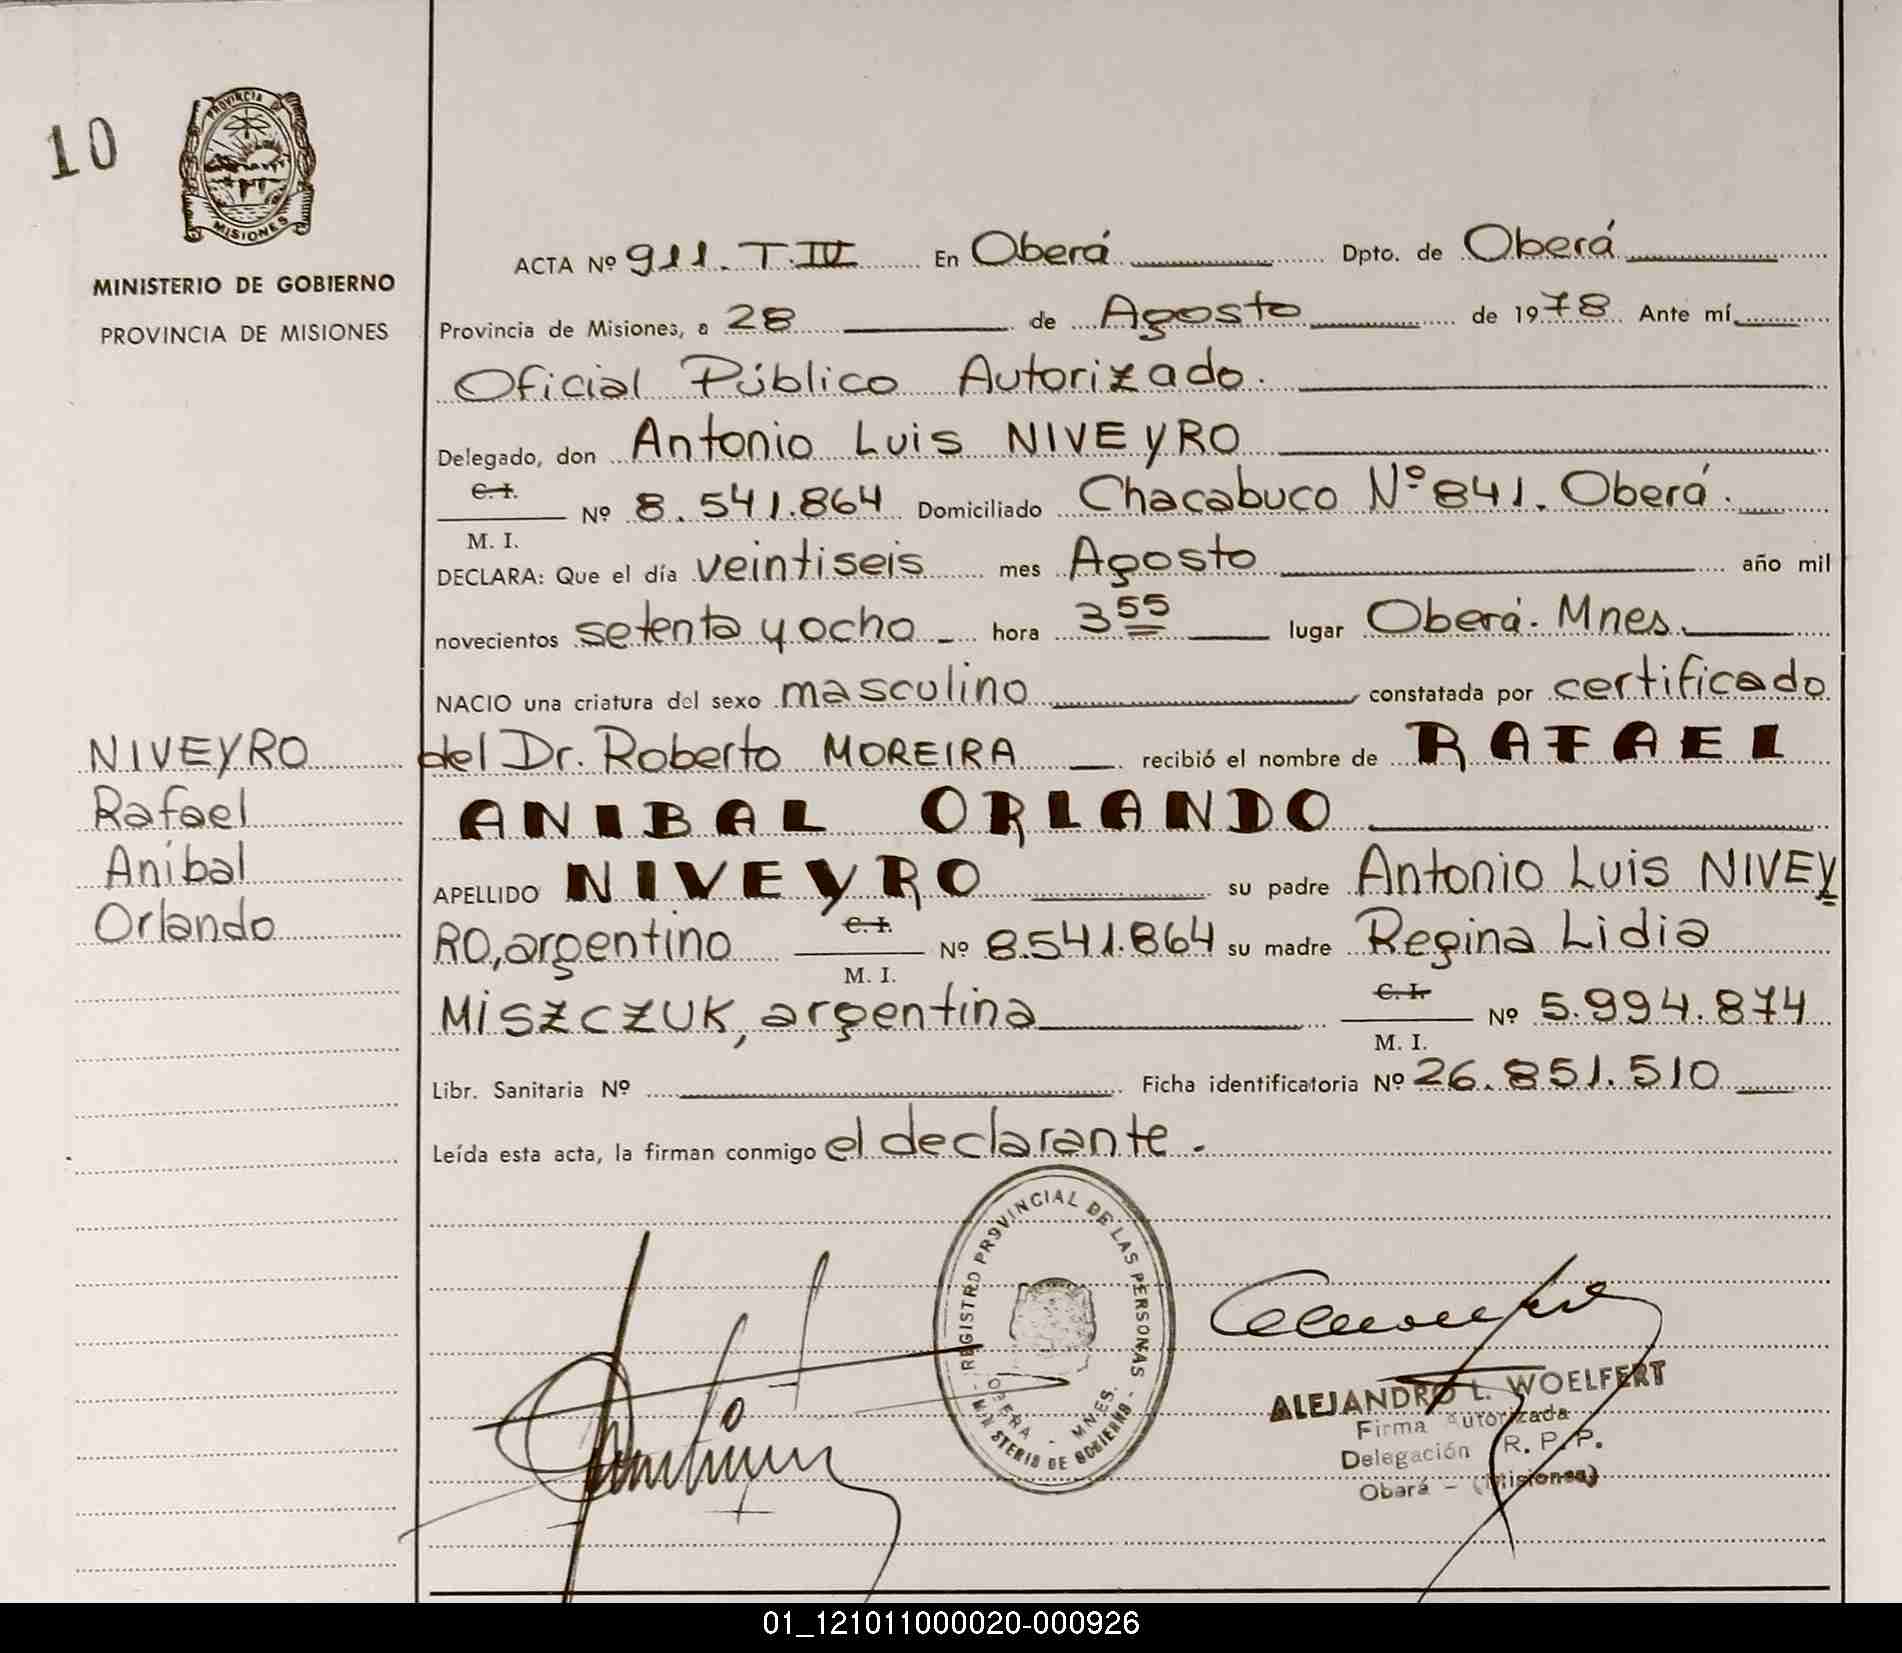 10
PROVINCIA
MISIONES
MINISTERIO DE GOBIERNO
PROVINCIA DE MISIONES
ACTA Nº 911. T. IV En Oberá Dpto. de Oberá
Provincia de Misiones, a 28 de Agosto de 1978 Ante mí
Oficial Público Autorizado.
Delegado, don Antonio Luis NIVEYRO
C. I.
Nº 8.541.864 Domiciliado Chacabuco Nº 841. Oberá.
M. I.
DECLARA: Que el día veintiseis mes Agosto año mil
novecientos setenta y ocho hora 3 55 lugar Oberá. Mnes.
NACIO una criatura del sexo masculino constatada por certificado
del Dr. Roberto MOREIRA recibió el nombre de RAFAEL
ANIBAL ORLANDO
APELLIDO NIVEYRO su padre Antonio Luis NIVEY
C. I.
RO, argentino Nº 8.541.864 su madre Regina Lidia
M. I.
C. I.
MISZCZUK, argentina Nº 5.994.874
M. I.
Libr. Sanitaria Nº Ficha identificatoria Nº 26.851.510
Leída esta acta, la firman conmigo el declarante.
NIVEYRO
Rafael
Aníbal
Orlando
REGISTRO PROVINCIAL DE LAS PERSONAS
OBERA - MNES.
MINISTERIO DE GOBIERNO
ALEJANDRO L. WOELFERT
Firma Autorizada
Delegación R. P. P.
Obará - (Misiones)
01_121011000020-000926